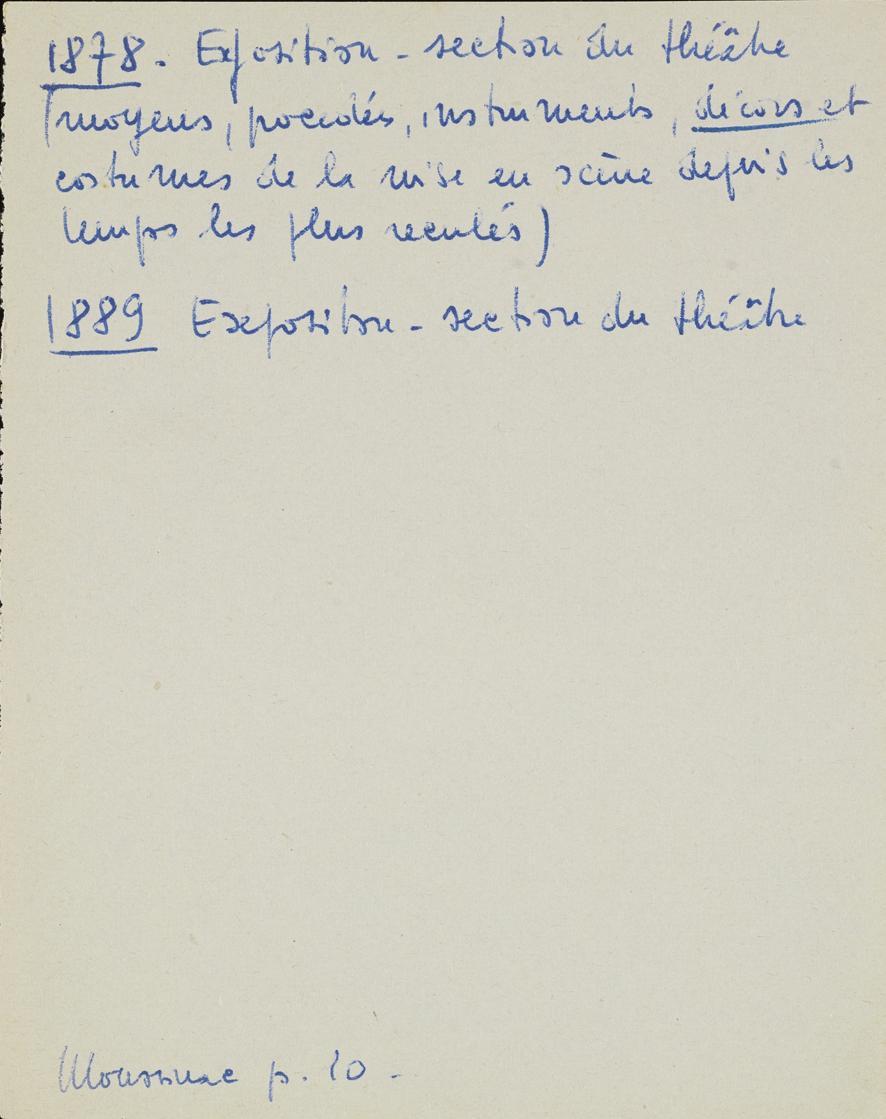 1878. Exposition - section du théâtre
(moyens, procédés, instruments, décors et
costumes de la mise en scène depuis les
temps les plus reculés)
1889 Exposition - section du théâtre
Moussinac p. 10 -